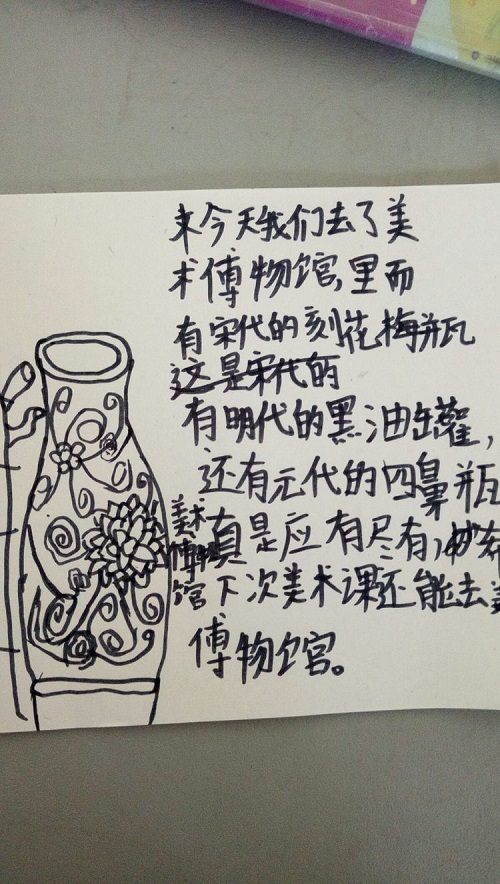 来今天我们去了美
术博物馆,里面
有宋代的刻花梅瓶
这是宋代的
有明代的黑油罐,
还有元代的四鼻瓶
美术博物馆
真是应有尽有,
下次美术课还能去美
博物馆。